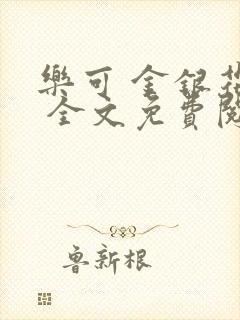 樂可 金銀花
全文免費閱
魯新根